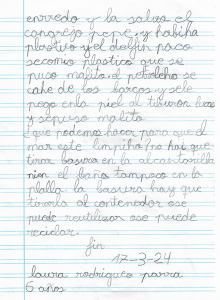 enrredo y la salvo el
cangrejo pepe, y habiha
plastico y el delfin paco
secomio plastico que se
puso malito. el petroleho se
cahe de los barcos y se le
pego enla piel al tiburon lucas
y sepuso malito
¿que podemos hacer para que el
mar este limpiho? no hay que
tirar basura en la alcantarilla
nien el baño tampoco en la
plalla la basura hay que
tirarla al contenedor ose
puede reutilizar ose puede
reciclar.
fin
17-3-24
laura rodriguez parra
6 años